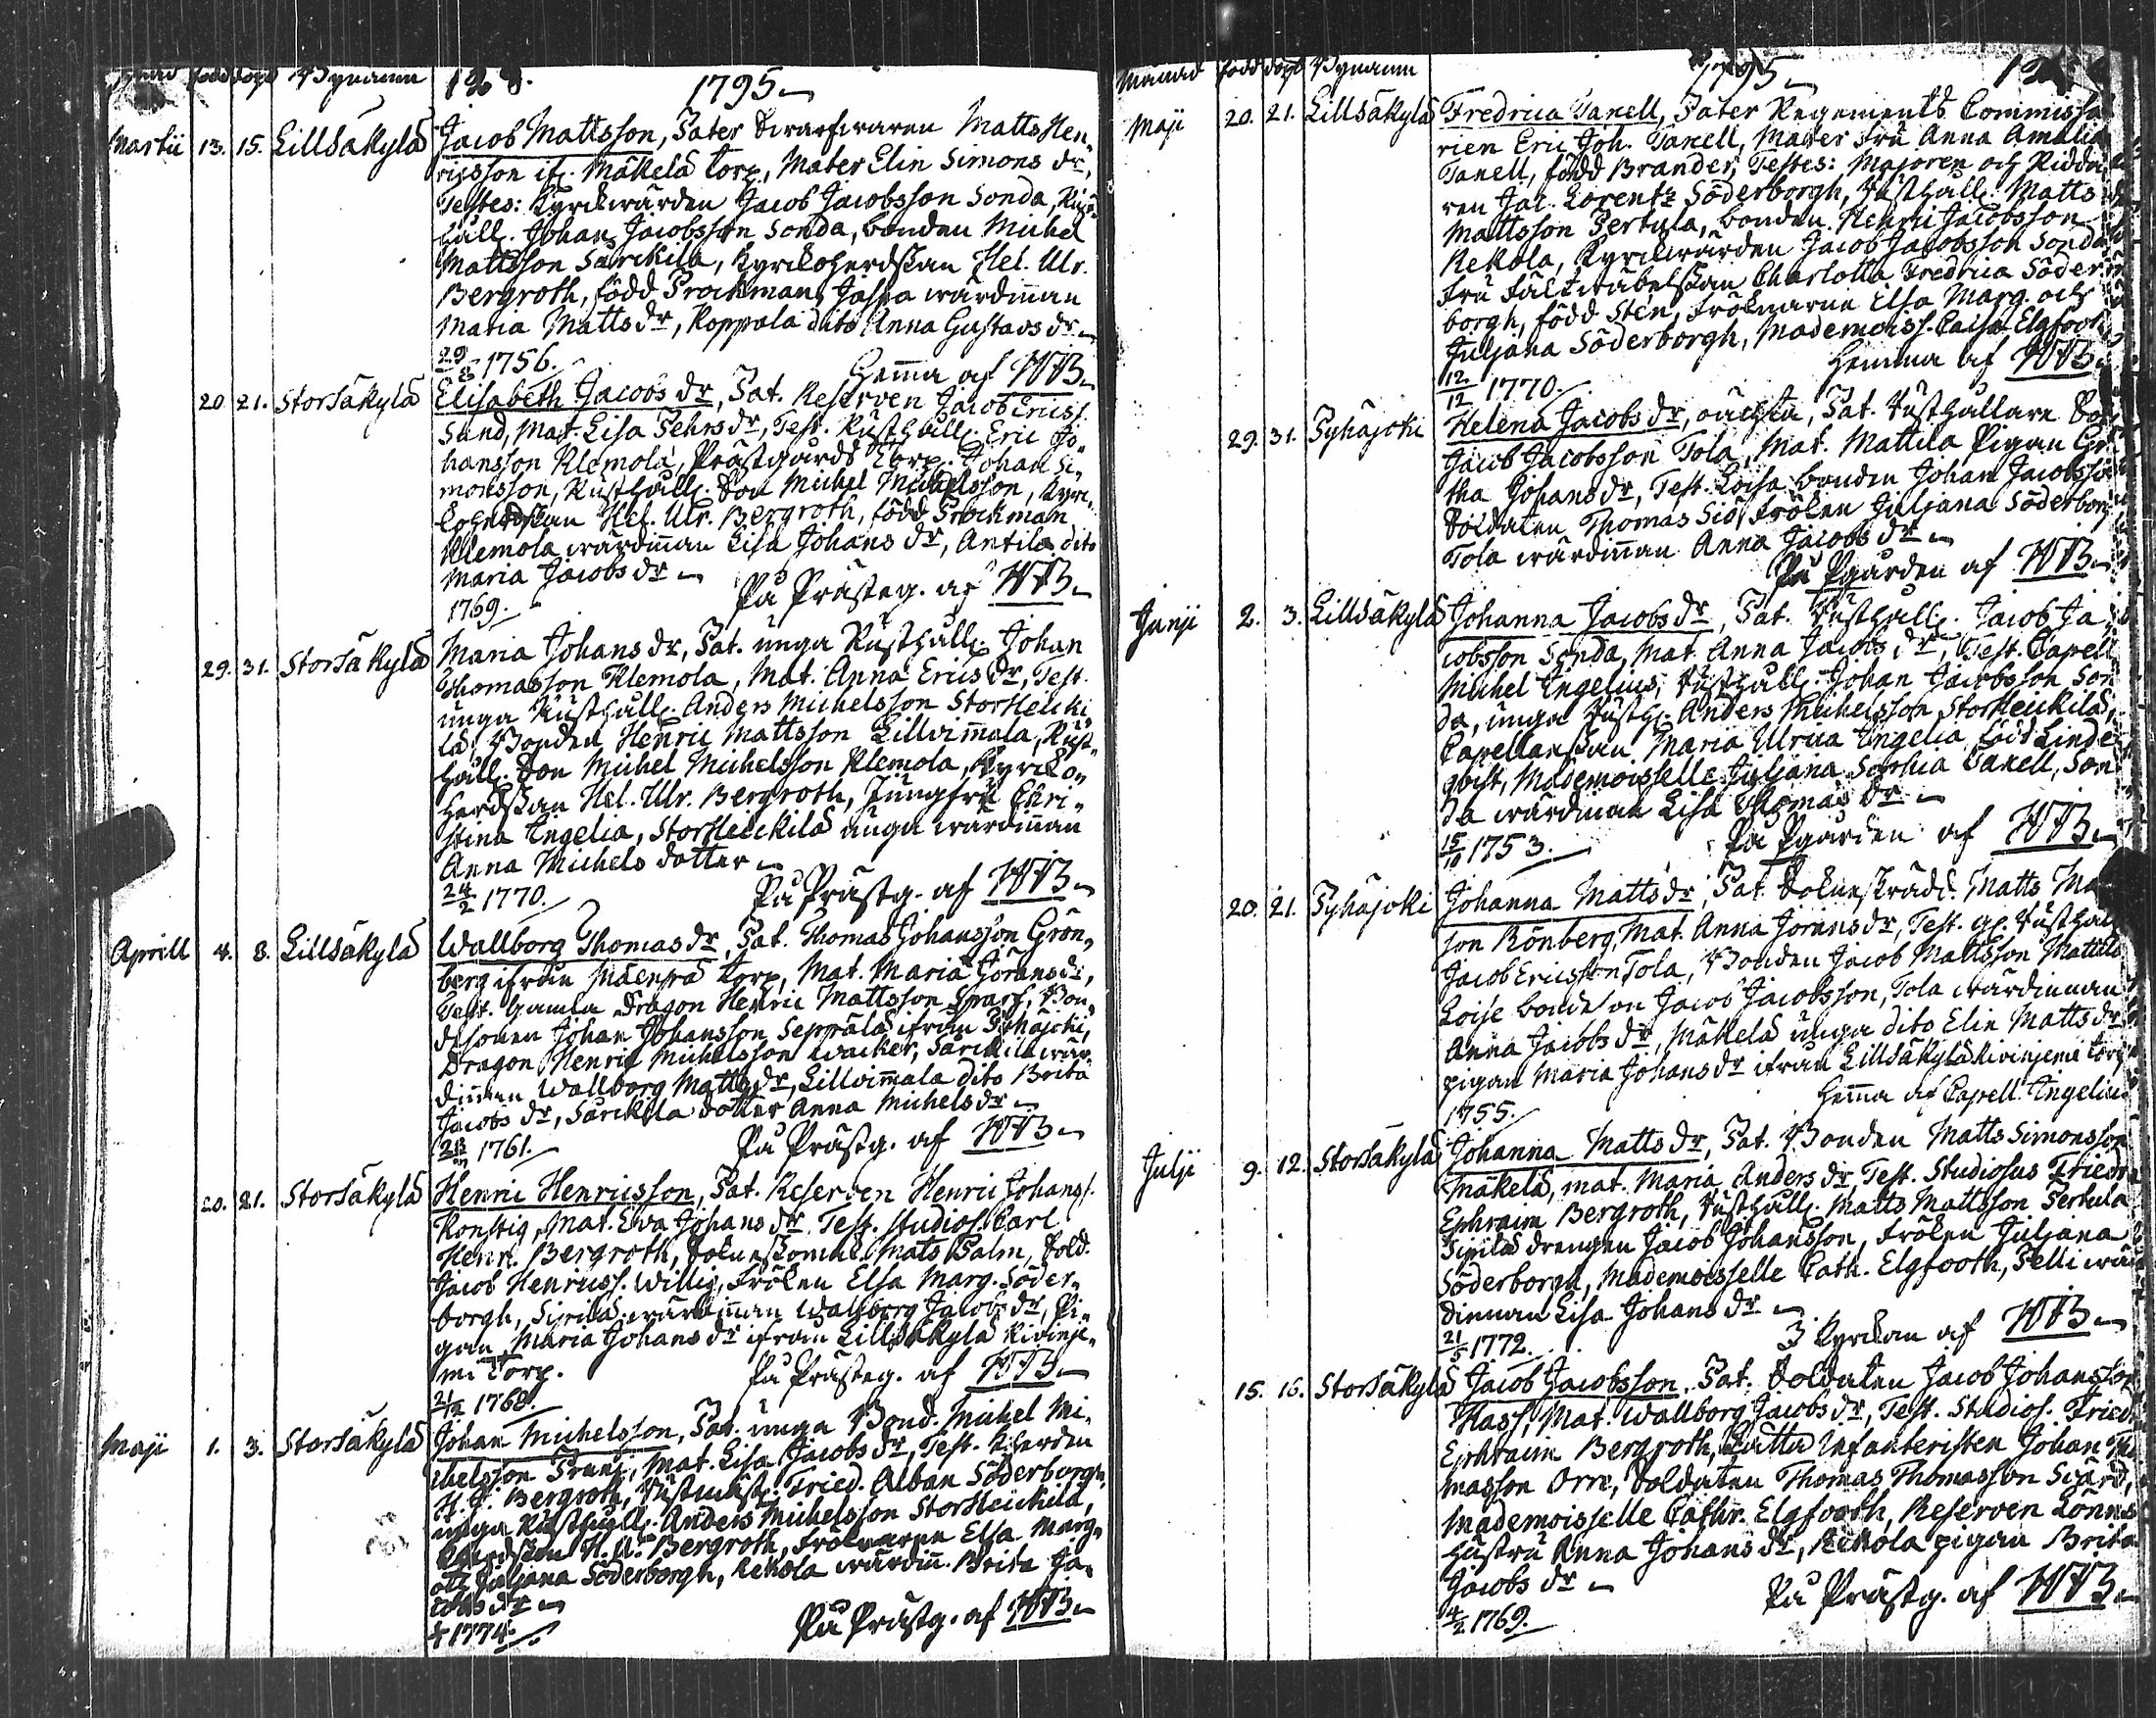 född döpt Bynamn 128. 1795
Martii 13. 15. Lillsäkylä Jacob Mattsson, Pater Swarfwaren Matts Hen„
ricsson if. Mäkelä torp, Mater Elin Simons dr,
Testes: Kyrckwärden Jacob Jacobsson Sonda, Rust„
håll. Johan Jacobsson Sonda, bonden Michel
Mattsson Särckilä, Kyrckoherdskan Hel. Ulr.
Bergroth, född Prockman, wärdinnan
Maria Matts dr, Koppala dito Anna Gustavs dr
29/8 1756. Hemma af WB
20. 21. Storsäkylä Elisabeth Jacobs dr, Pat. Reserven Jacob Ericss.
Sund, Mat. Lisa Pehrs dr, Test. Rusthåll. Eric Jo„
hansson Klemola, Prästgårds Torp. Johan Si„
monsson, Rusthåll. Son Michel Michelsson, Kyrc„
koherdskan Hel. Ulr. Bergroth, född Prockman
Klemola wärdinnan Lisa Johans dr, Antila dito
Maria Jacobs dr
På Prästeg. af WB
1769.
29. 31. Storsäkylä Maria Johans dr, Pat. unga Rusthåll. Johan
Thomasson Klemola, Mat. Anna Erics dr, Test.
unga Rusthåll. Anders Michelsson Storheicki„
lä, Bonden Henric Mattsson Lillvimmala, Rust„
håll. Son Michel Michelsson Klemola, Kyrcko„
herdskan Hel. Ulr. Bergroth, Jungfru Chri„
stina Engelia, Storheickilä unga wärdinnan
Anna Michels dotter
24/2 1770. På Prästg. af WB
Aprill 4. 8. Lillsäkylä Wallborg Thomas dr, Pat. Thomas Johansson Grön„
berg ifrån Mäenpä torp, Mat. Maria Jörans dr,
Test. Gamla Dragon Henric Mattsson Sparf, Bon„
desonen Johan Johansson Seppälä ifrån Pyhäjoki,
Dragon Henric Michelsson Wacker, Särckilä wär„
dinnan Wallborg Matts dr, Lillvimmala dito Brita
Jacobs dr, Särckilä dotter Anna Michels dr
1761. På Prästg. af WB
20. 21. Storsäkylä Henric Henricsson, Pat. Reserven Henric Johanss.
Konstig, Mat. Eva Johans dr Test. Studios. Carl
Henr. Bergroth, Mats Palm, Sold.
Jacob Henricss. Willig, Fröken Elsa Marg. Söder„
borgh, Sipilä wärdinnan Wallborg Jacobs dr, Pi„
gan Maria Johans dr ifrån Lillsäkylä Kivinje„
mi Torp. På Prästeg. af WB
21/12 1768.
Maji 1. 3. Storsäkylä Johan Michelsson, Pat. unga Bond. Michel Mi„
chelsson Prunj, Mat. Lisa Jacobs dr, Test. Kherden
H. J. Bergroth, Fried. Alban Söderborgh,
unga Rusthåll. Anders Michelsson Storheickilä,
Kherdskan H. U. Bergroth, Fröknarne Elsa Marg.
och Juljana Söderborgh, Rekola wärdin. Brita Ja„
cobs dr
1774. På Prästg. af WB
Månad född döpt Bynamn 1795
Maji 20. 21. Lillsäkylä Fredrica Tanell, Pater Regements Commissa
rien Eric Joh. Tanell, Mater Fru Anna Amalia
Tanell, född Brander, Testes: Majoren och Ridda
ren Jac. Lorentz Söderborgh, Rusthåll. Matts
Mattsson Pertula, bonden Henric Jacobsson
Rekola, Kyrckwärden Jacob Jacobsson Sonda
Fru Fältwäbelskan Charlotta Fredrica Söder
borgh, född Sten, Fröknarne Elsa Marg. och
Juljana Söderborgh, Mademoiss. Caisa Elgfoot
Hemma af WB
12/12 1770.
29. 31. Pyhäjoki Helena Jacobs dr, oächta, Pat. Rusthållare Son
Jacob Jacobsson Tola, Mat. Mattila Pigan Gr
tha Johans dr, Test. Loisa bonden Johan Jacobsson
Soldaten Thomas Siö, Fröken Juljana Söderbor
Tola wärdinnan Anna Jacobs dr
På Pgården af WB
Junji 2. 3. Lillsäkylä Johanna Jacobs dr, Pat. Rusthåll. Jacob Ja
cobsson Sonda, Mat. Anna Jacobs dr, Test. Capell
Michel Engelius, Rusthåll. Johan Jacobsson Son
da, unga Rusth. Anders Michelsson Storheickilä,
Capellanskan Maria Ulrica Engelia född Linde
qvist, Mademoisselle Juljana Sophia Tanell, Son
da wärdinnan Lisa Thomas dr
15/10 1753. På Pgården af WB
20. 21. Pyhäjoki Johanna Matts dr, Pat. Sokneskrädd. Matts Ma
son Rönberg, Mat. Anna Jörans dr, Test. gl. Rusthåll
Jacob Ericsson Tola, Bonden Jacob Mattsson Mattila
Loise bonde son Jacob Jacobsson, Tola wärdinnan
Anna Jacobs dr, Mäkelä unga dito Elin Matts dr
pigan Maria Johans dr ifrån Lillsäkylä Kivinjemi torp
Hemma af Capell. Engelius
1755.
Julji 9. 12. Storsäkylä Johanna Matts dr, Pat. Bonden Matts Simonsson
Mäkelä, mat. Maria Anders dr, Test. Studiosus Friedr
Ephraim Bergroth, Rusthåll. Matts Mattsson Pertula
Sipilä drengen Jacob Johansson, Fröken Juljana
Söderborgh, Mademoisselle Cath. Elgfooth, Pelli wär
dinnan Lisa Johans dr
21/5 1772. I Kyrckan af WB
15. 16. Storsäkylä Jacob Jacobsson, Pat. Soldaten Jacob Johansson
Hass, Mat. Wallborg Jacobs dr, Test. Studios. Fried.
Ephraim Bergroth, Lätta Infanteristen Johan Tho
masson Orre, Soldaten Thomas Thomasson Svärd,
Mademoisselle Cathr. Elgfooth, Reserven Lönns
Hustru Anna Johans dr, Rekola pigan Brita
Jacobs dr
På Prästg. af WB
4/2 1769.